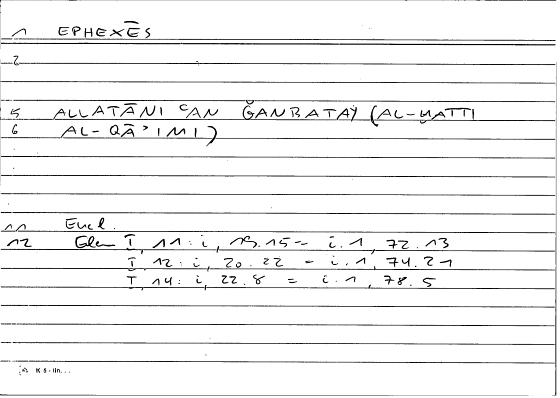 1 EPHEXĒS
2
5 ALLATĀNI ʿAN ǦANBATAY (AL-ḪAṬṬI
6 AL-QĀʾIMI)
11 Eucl.
12 Elem I, 11: i, 19.15 = i.1, 72.13
I, 12: i, 20.22 = i.1, 74.21
I, 14: i, 22.8 = i.1, 78.5